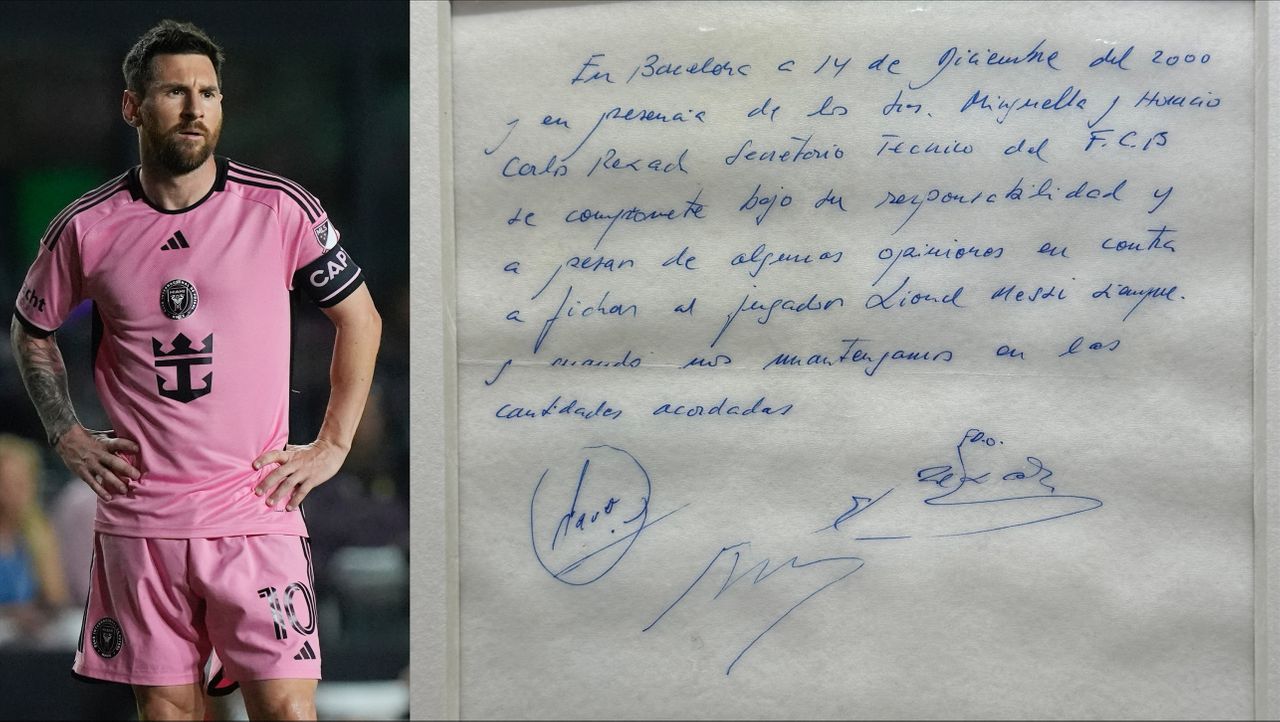 cht
CAP
MLS
10
En Barcelona a 14 de Diciembre del 2000
y en presencia de los Srs. Minguella y Horacio
Carlos Rexach Secretorio Tecnico del F.C.B
se compromete bajo su responsabilidad y
a pesar de algunas opiniones en contra
a fichar al jugador Lionel Messi siempre
y cuando nos mantengamos en las
cantidades acordadas
FD.O.
Rexach